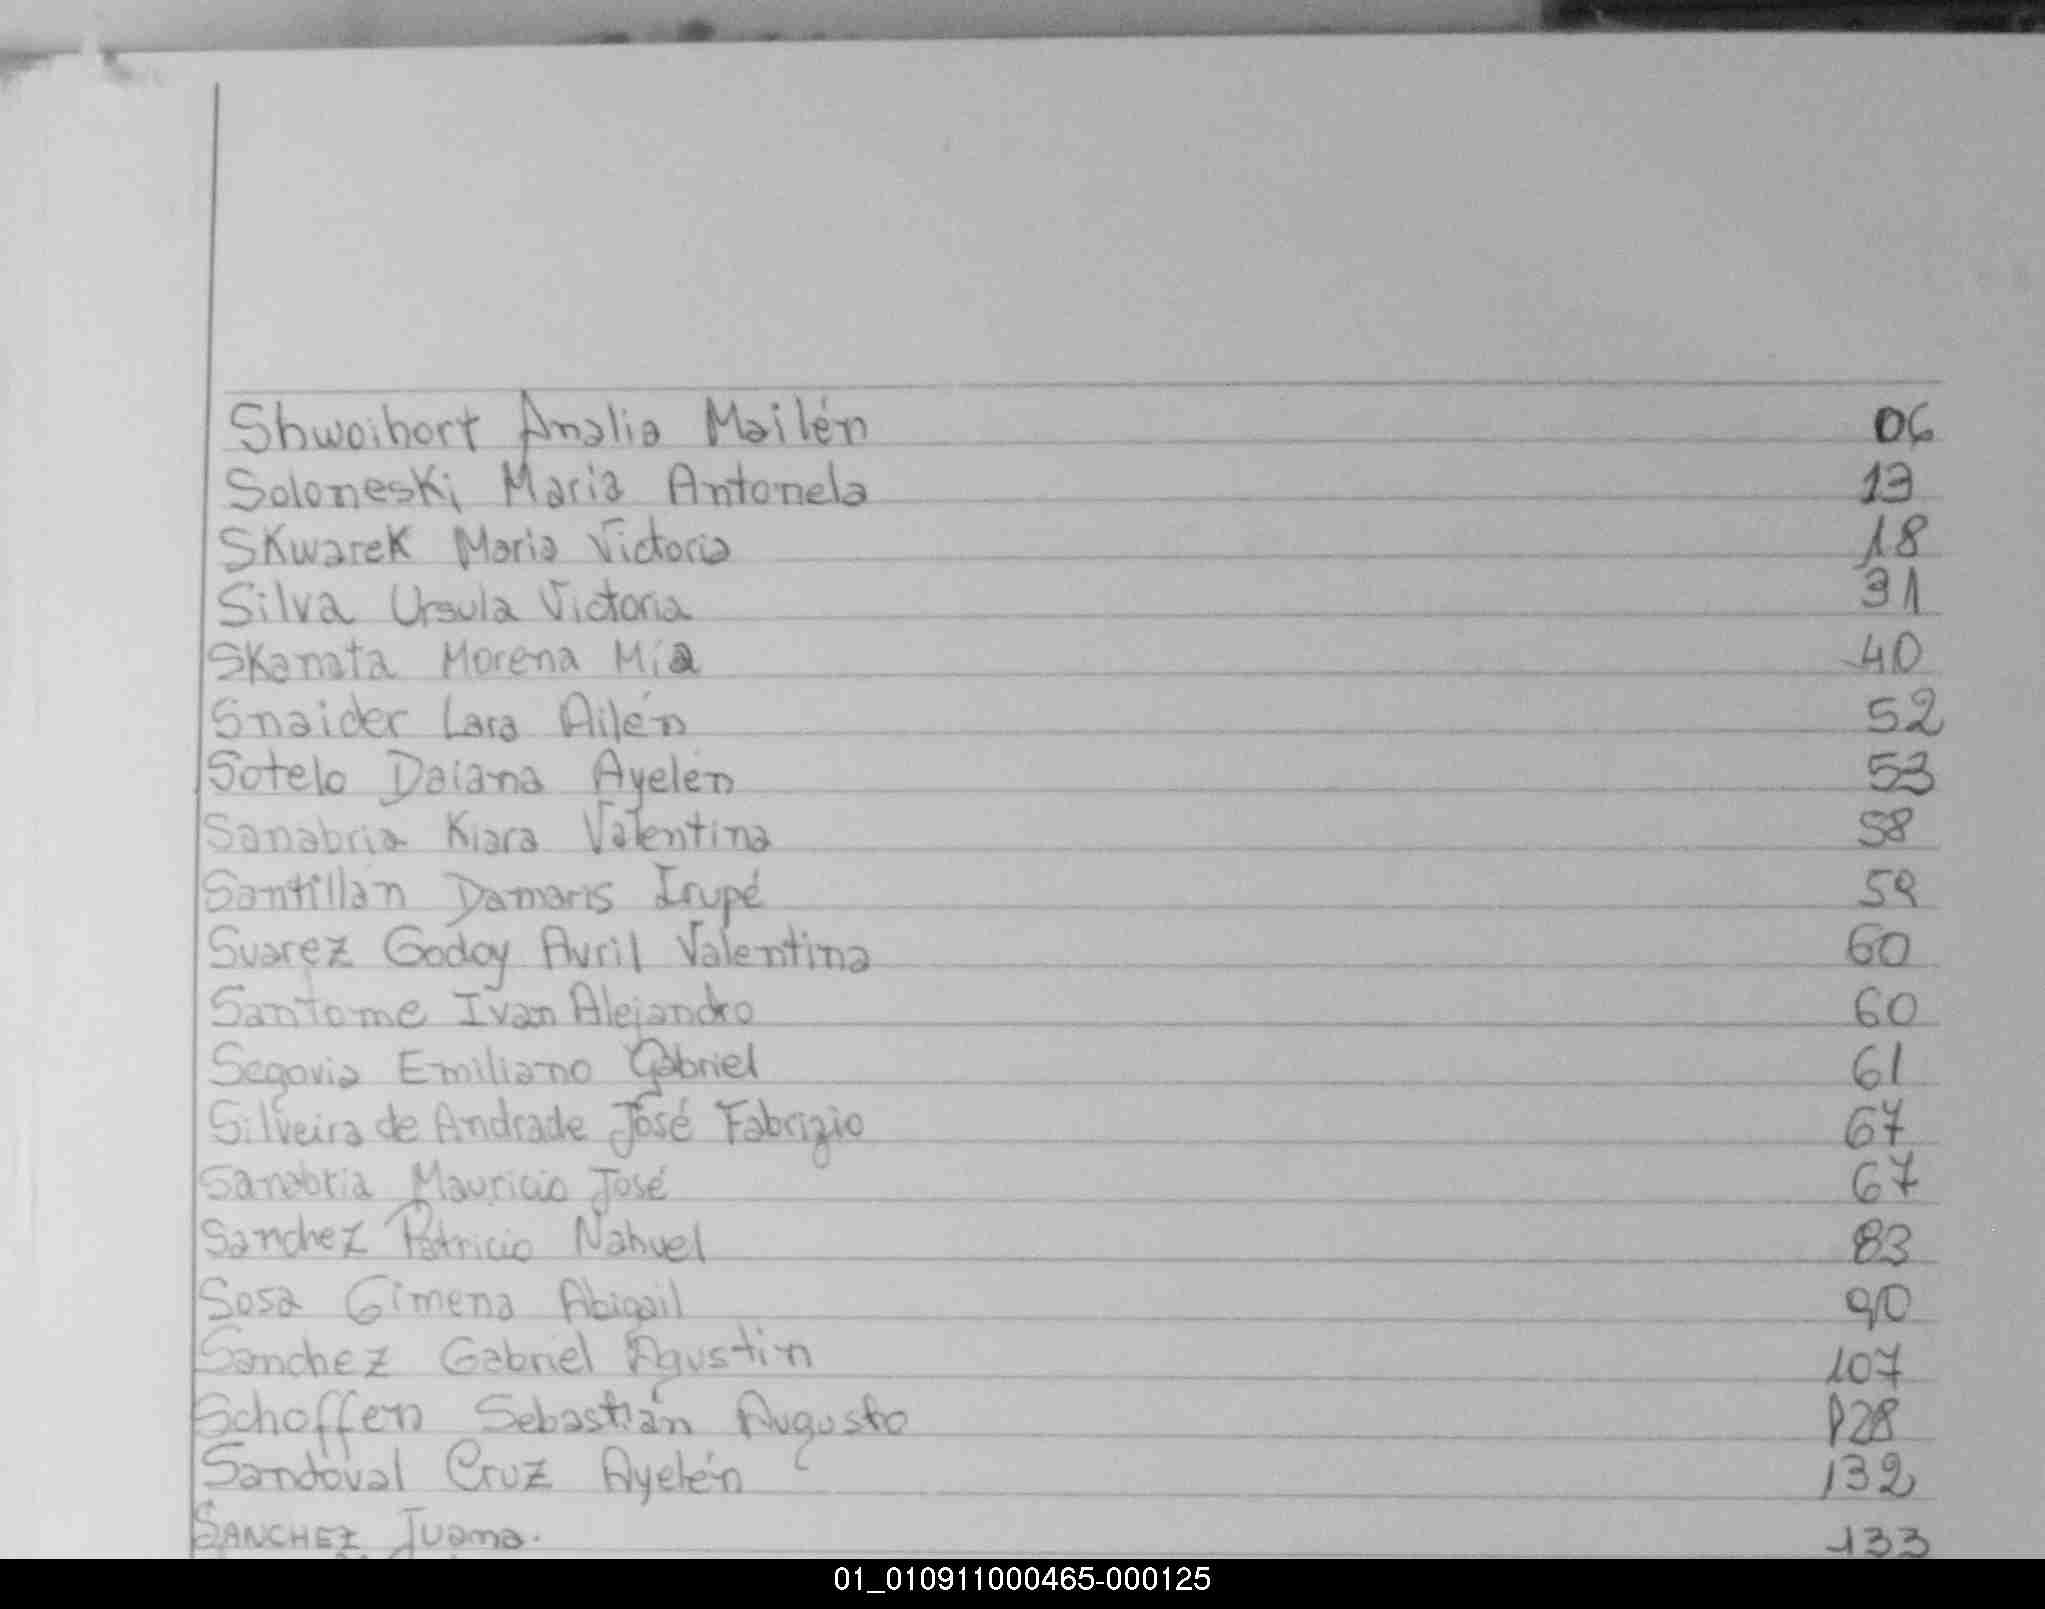 Shwaihort Analia Mailén 06
Soloneski Maria Antonela 13
SKwareK Maria Victoria 18
Silva Ursula Victoria 31
SKanata Morena Mía 40
Snaider Lara Ailén 52
Sotelo Daiana Ayelén 53
Sanabria Kiara Valentina 58
Santillán Damaris Irupé 59
Suarez Godoy Avril Valentina 60
Santome Ivan Alejandro 60
Segovia Emiliano Gabriel 61
Silveira de Andrade José Fabrizio 67
Sanabria Mauricio José 67
Sanchez Patricio Nahuel 83
Sosa Gimena Abigail 90
Sanchez Gabriel Agustin 107
Schoffen Sebastián Augusto 128
Sandoval Cruz Ayelén 132
SANCHEZ Juana. 133
01_010911000465-000125